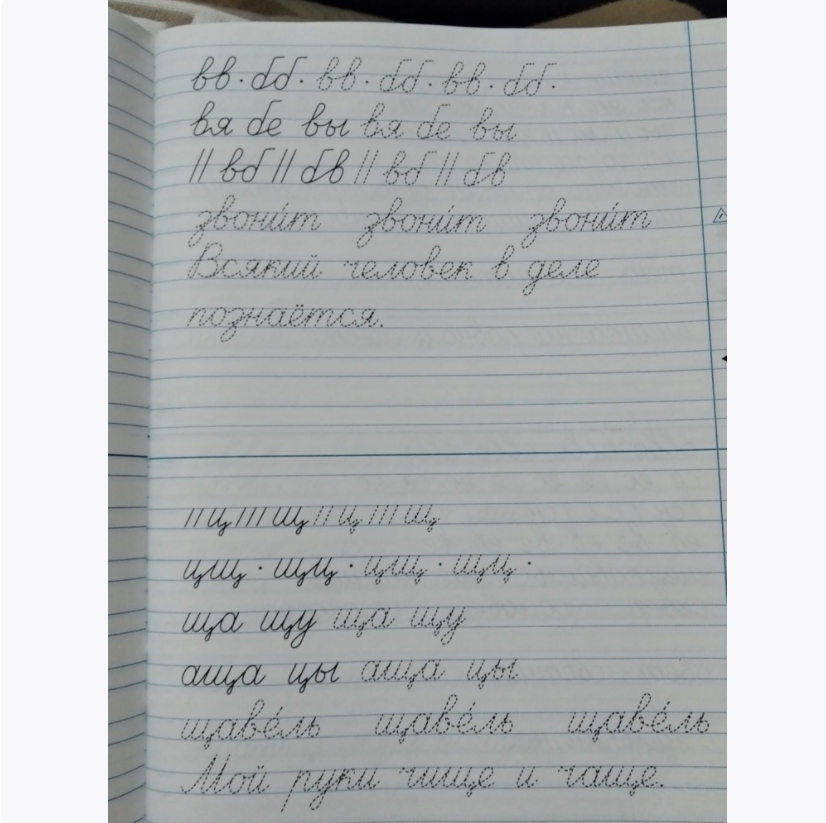 вв · бб · вв · бб · вв · бб ·
вя бе вы вя бе вы
// вб // бв // вб // бв
звони́т звони́т звони́т
Всякий человек в деле
познаётся.
// ц /// щ // ц /// щ
цщ · щц · цщ · щц ·
ща щу ща щу
аща цы аща цы
щаве́ль щаве́ль щаве́ль
Мой руки чище и чаще.